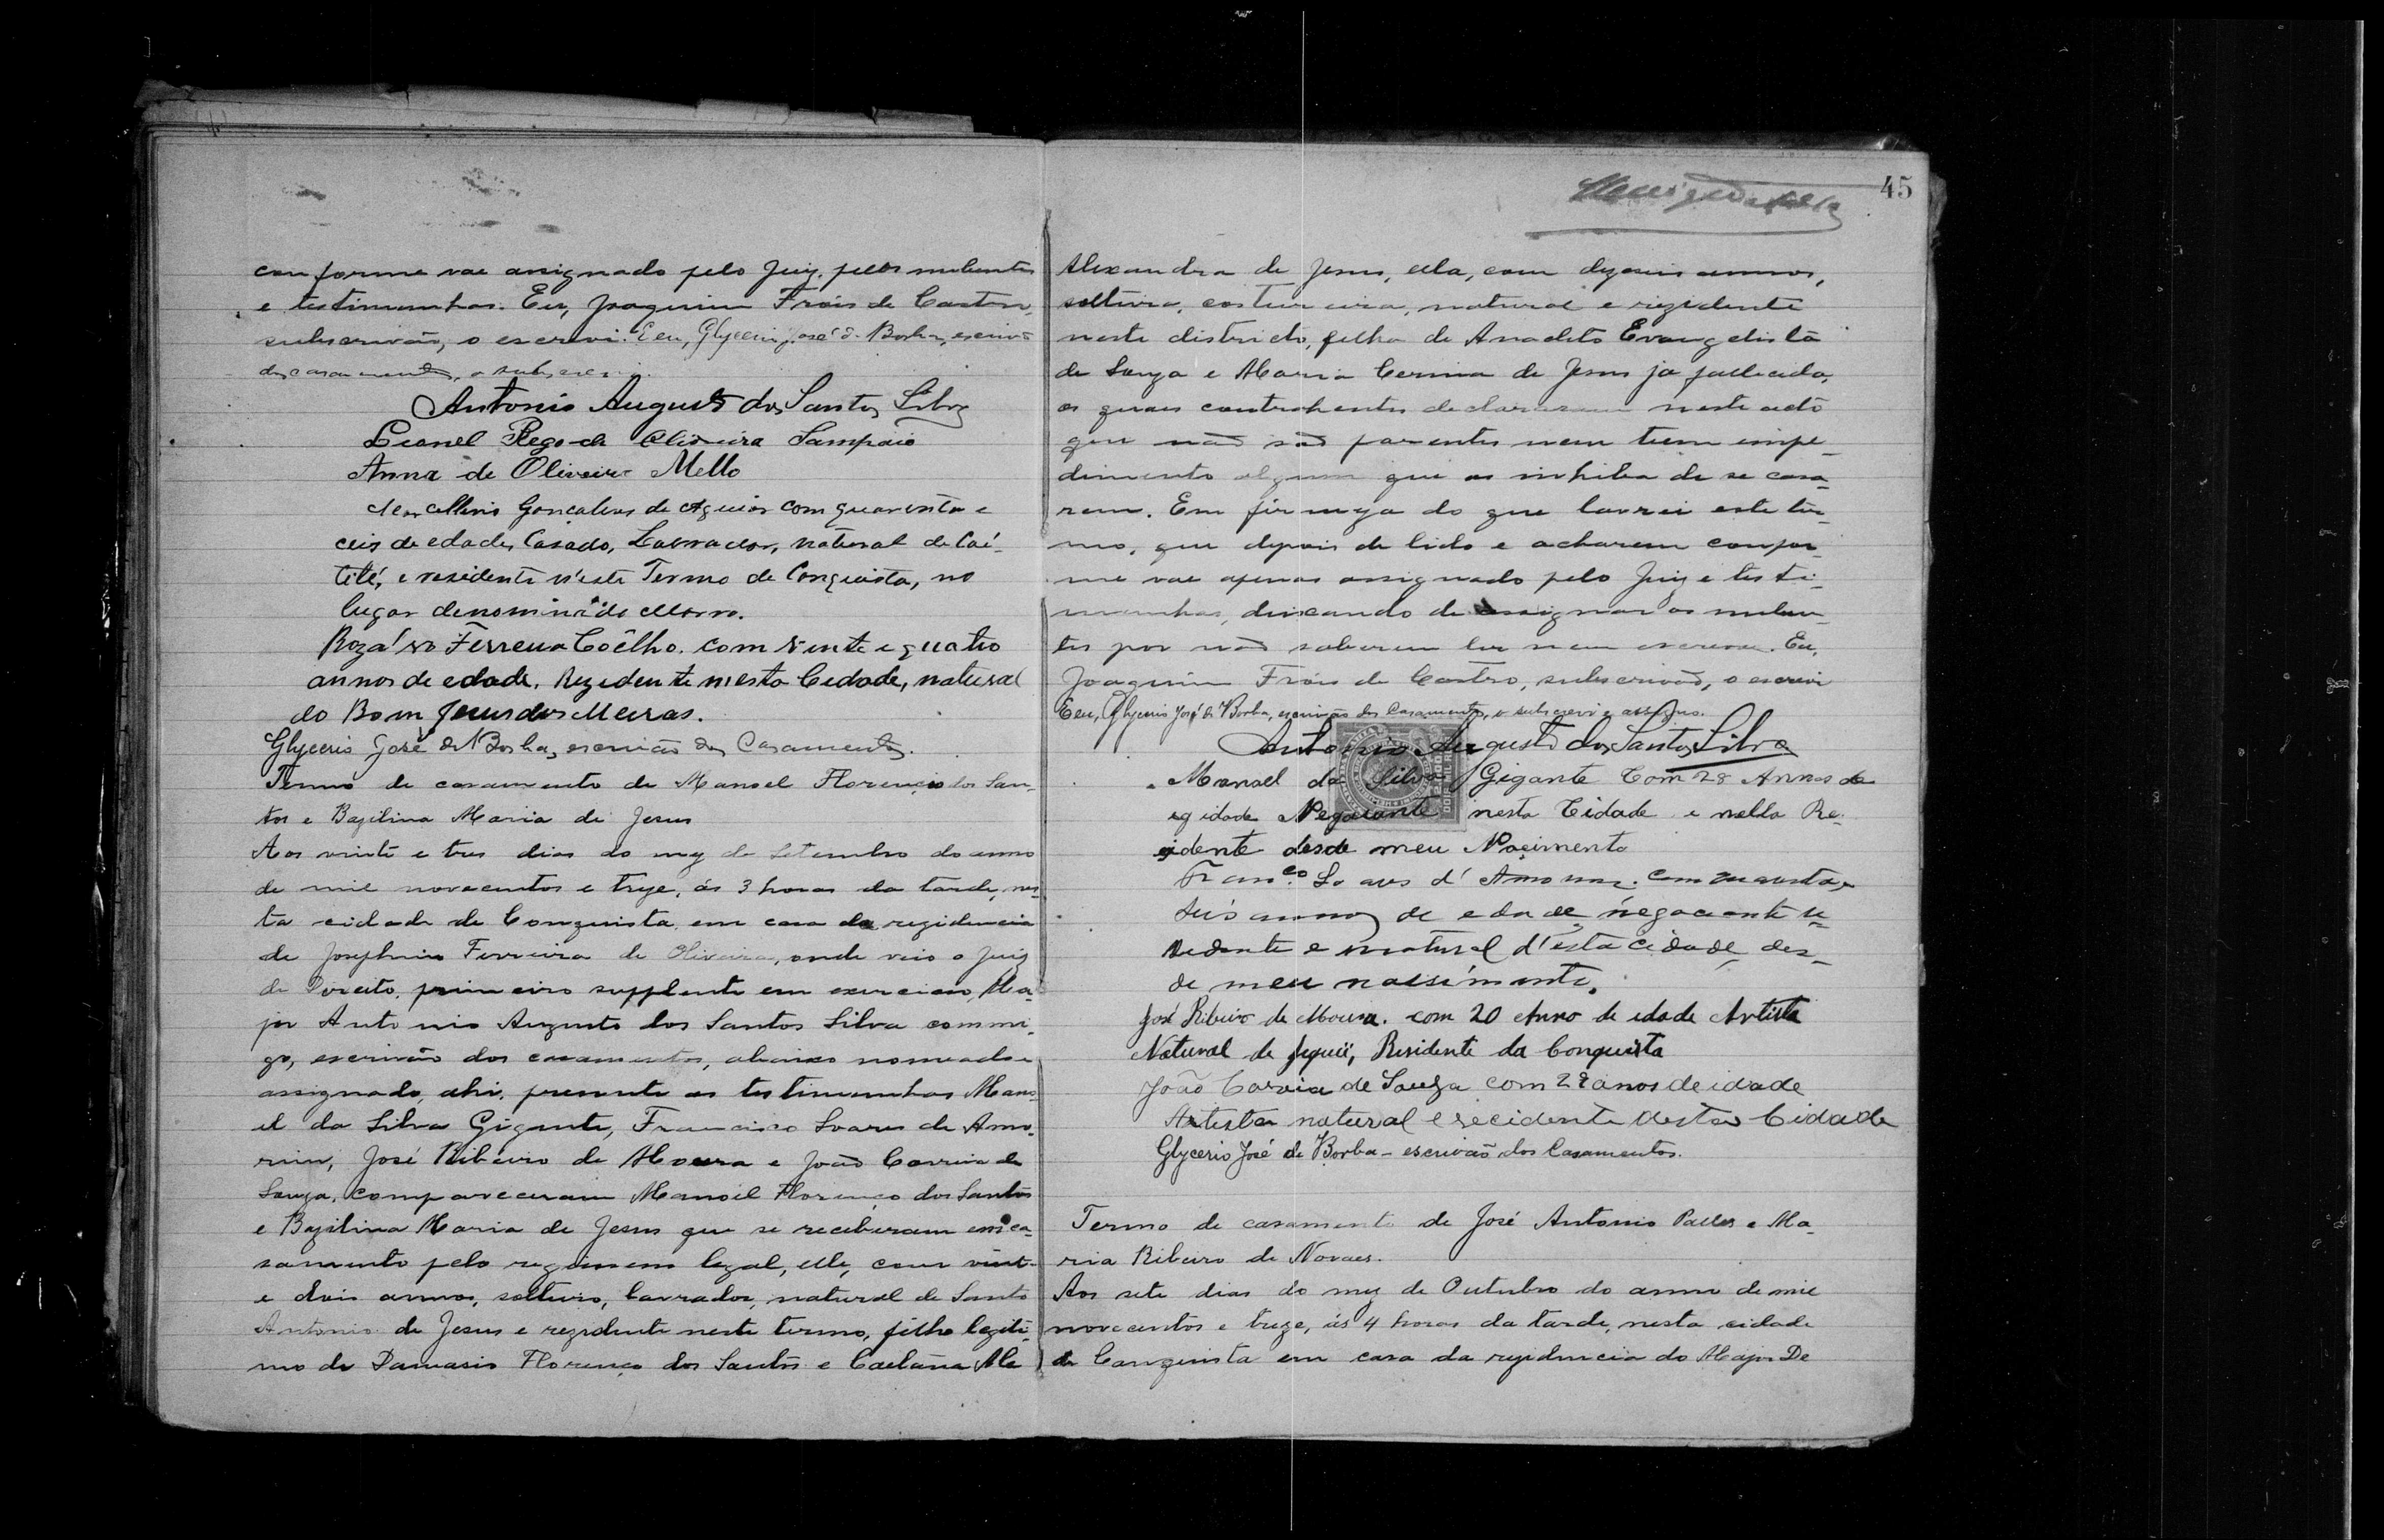 conforme vae assignado pelo Juiz, pelos nubentes
e testimunhas. Eu, Joaquim Fróis de Castro,
subscrivão, o escrevi. E eu, Glycerio José de Borba, escrivão
dos casamentos, o subscrevi.
Antonio Augusto dos Santos Silva
Leonel Rego de Oliveira Sampaio
Anna de Oliveira Mello
Gonçalves de Aguiar com quarenta e
ceis de edade, Casado, Lavrador, natural de Caí-
tité, e residente n'este Termo de Conquista, no
lugar denominado Morro.
Ferreira Coêlho. com vinte e quatro
annos de edade. Rezidente nesta Cidade, natural
do Bom Jesus dos Meiras.
Glycerio José de Borba, escrivão dos Casamentos.
Termo de casamento de Manoel Florenço dos San-
tos e Bazilina Maria de Jesus
Aos vinte e tres dias do mez de Setembro do anno
de mil novecentos e treze, ás 3 horas da tarde, nes-
ta cidade de Conquista em casa da rezidencia
de Josephino Ferreira de Oliveira, onde veio o Juiz
de Direito, primeiro supplente em exercicio, Ma-
jor Antonio Augusto dos Santos Silva commi-
go, escrivão dos casamentos, abaixo nomeado e
assignado, ahi, presente as testimunhas Mano-
el da Silva Gigante, Francisco Soares de Amo-
rim, José Ribeiro de Moura e João Correia de
Souza, compareceram Manoel Florenço dos Santos
e Bazilina Maria de Jesus que se receberam em ca-
samento pelo regimem legal, elle, com vinte
e dois annos, solteiro, lavrador, natural de Santo
Antonio de Jesus e rezidente neste termo, filho legiti-
mo de Damasio Florenço dos Santos e Caetana Ale
45
Alexandra de Jesus, ella, com dezeseis annos,
solteira, costureira, natural e rezidente
neste districto, filha de Anacleto Evangelista
de Souza e Maria Cermina de Jesus já fallecida,
os quaes contrahentes declararam neste acto
que não são parentes nem teem impe-
dimento algum que os inhiba de se casa-
rem. Em firmeza do que lavrei este ter-
mo, que depois de lido e acharem confor-
me vae apenas assignado pelo Juiz e testi-
munhas, deixando de assignar os nuben-
tes por não saberem ler nem escrever. Eu,
Joaquim Fróis de Castro, subscrivão, o escrevi
E eu, Glycerio José de Borba, escrivão dos Casamentos, o subscrevi e assigno.
Antonio Augusto dos Santos Silva
Manoel da Silva Gigante Com 28 Annos de
egidade Negociante nesta Cidade e nella Re-
zidente desde meu Nacimento
Franco Soares d'Amorim. com quarenta e
seis annos de edade, negociante re-
zedente e natural d'esta cidade, des-
de meu nassimento.
José Ribeiro de Moura. com 20 Anno de idade Artista
Natural de Jequié, Residente da Conquista
João Correia de Souza com 28 anos de idade
Artista natural e recidente desta Cidade
Glycerio José de Borba - escrivão dos Casamentos.
Termo de casamento de José Antonio Palles e Ma-
ria Ribeiro de Novaes.
Aos sete dias do mez de Outubro do anno de mil
novecentos e treze, ás 4 horas da tarde, nesta cidade
da Conquista em casa da rezidencia do Major De